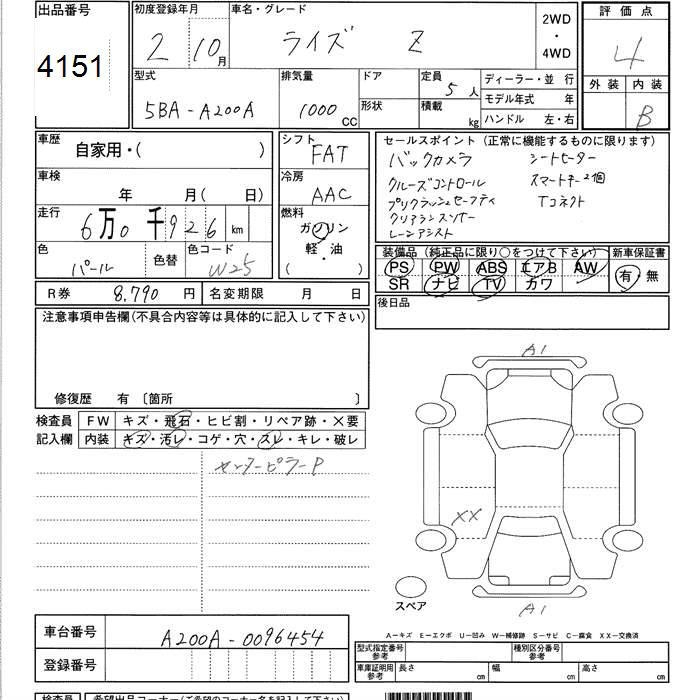 出品番号
4151
初度登録年月
2 10月
車名・グレード
ライズ Z
2WD
・
4WD
評価点
4
外装 内装
B
型式
5BA-A200A
排気量
1000 CC
ドア
形状
定員 5人
積載 kg
ディーラー・並 行
モデル年式 年
ハンドル 左・右
車歴
自家用・( )
車検
年 月( 日)
走行
6万0千926 km
色
パール
色替
色コード
W25
シフト
FAT
冷房
AAC
燃料
ガソリン
軽・油
( )
セールスポイント (正常に機能するものに限ります)
バックカメラ シートヒーター
クルーズコントロール スマートキー2個
プリクラッシュセーフティ Tコネクト
クリアランスソナー
レーンアシスト
装備品 (純正品に限り〇をつけて下さい)
新車保証書
PS PW ABS エアB AW
SR ナビ TV カワ
有・無
後日品
R券 8,790 円
名変期限 月 日
注意事項申告欄(不具合内容等は具体的に記入して下さい)
修復歴 有 〔箇所 〕
検査員
記入欄
FW キズ・飛石・ヒビ割・リペア跡・X要
内装 キズ・汚レ・コゲ・穴・スレ・キレ・破レ
センターピラーP
A1
XX
A1
スペア
A-キズ E-エクボ U-凹み W-補修跡 S-サビ C-腐食 XX-交換済
車台番号 A200A-0096454
登録番号
型式指定番号
参考
種別区分番号
参考
車庫証明用
参考
長さ cm 幅 cm 高さ cm
検査員 希望出品コーナー(ご希望のコーナー名を記入して下さい)